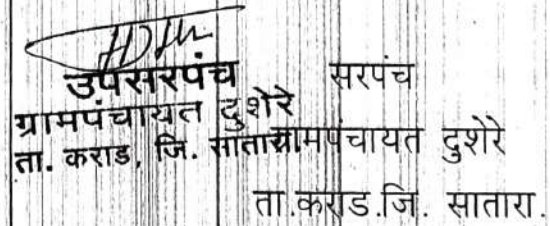 उपसरपंच
ग्रामपंचायत दुशेरे
ता. कराड, जि. सातारा
सरपंच
ग्रामपंचायत दुशेरे
ता.कराड.जि. सातारा.